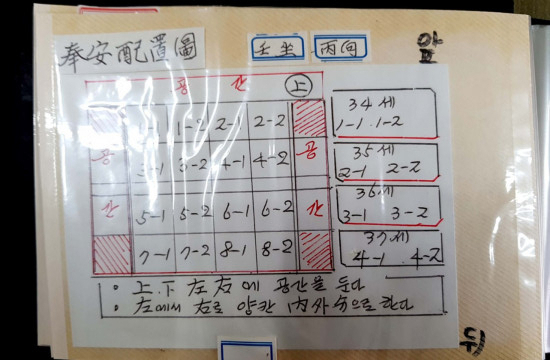 奉安配置圖
壬坐 丙向
앞
공 간
上
1-1 1-2 2-1 2-2
공 3-1 3-2 4-1 4-2 공
간 5-1 5-2 6-1 6-2 간
7-1 7-2 8-1 8-2
34세
1-1 . 1-2
35세
2-1 2-2
36세
3-1 3-2
37세
4-1 4-2
· 上.下 左右에 공간을 둔다
· 左에서 右로 양칸 內外 순으로 한다
뒤